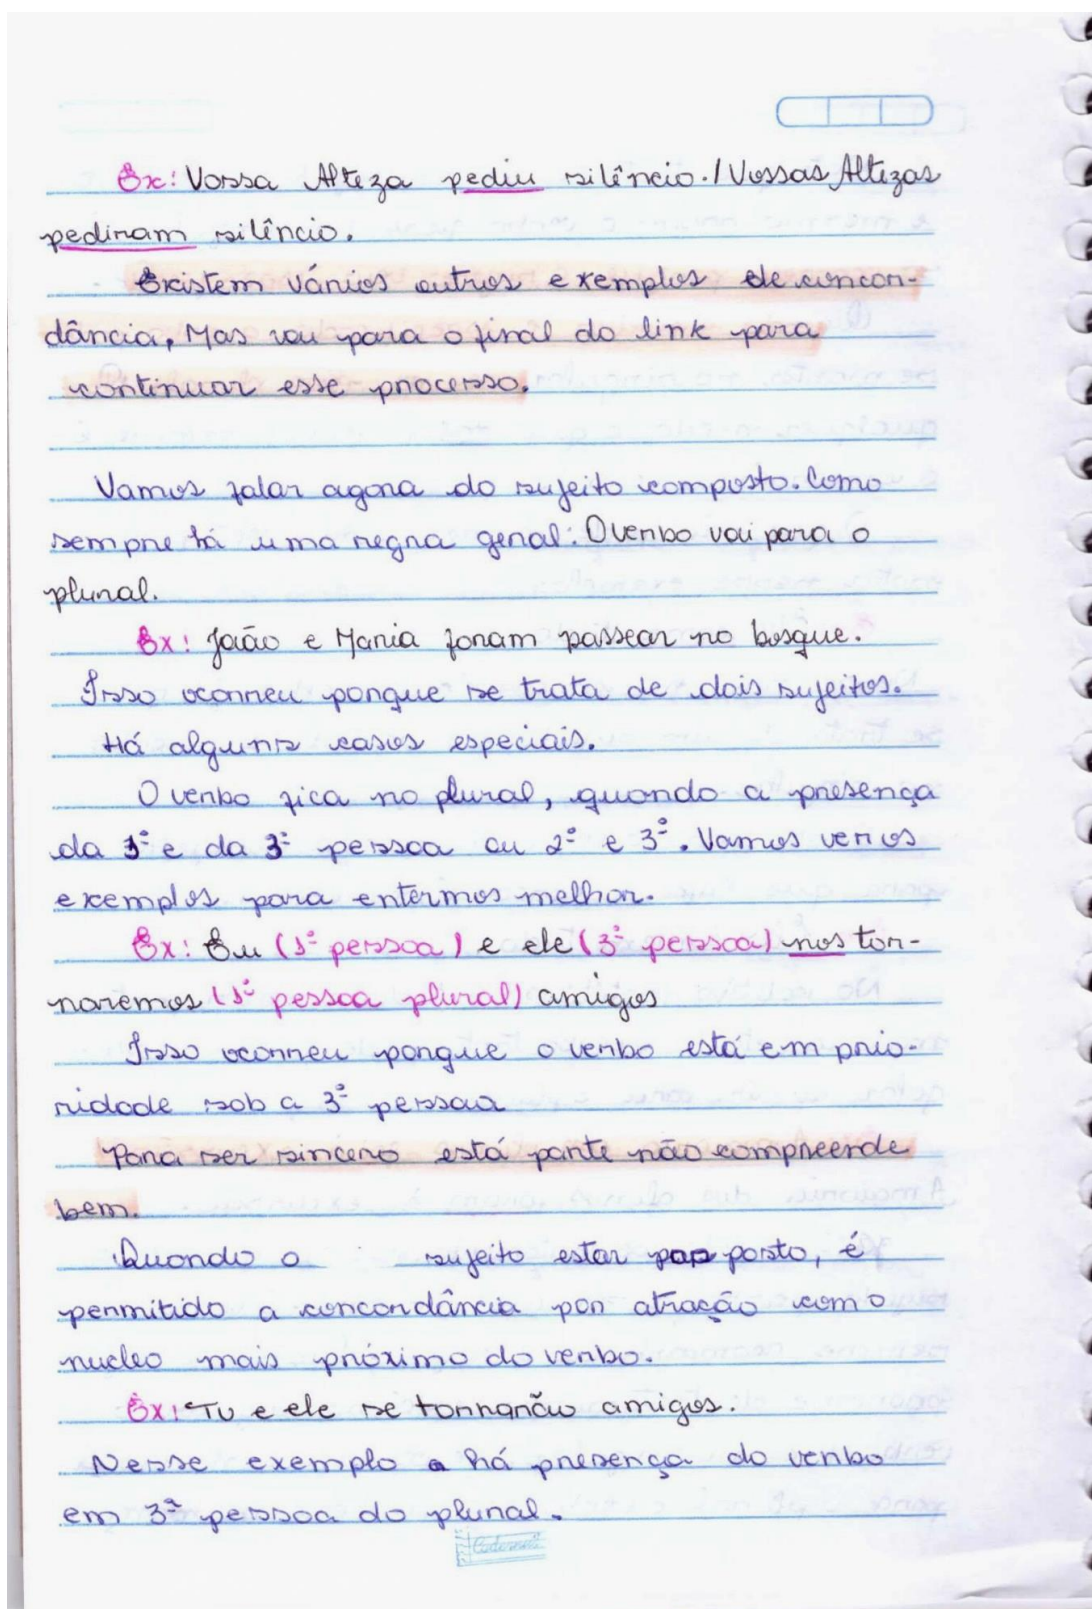 Ex: Vossa Alteza pediu silêncio. / Vossas Altezas
pediram silêncio.
Existem vários outros exemplos de concor-
dância, Mas vou para o final do link para
continuar esse processo.
Vamos falar agora do sujeito composto. Como
sempre há uma regra geral: O verbo vai para o
plural.
Ex: João e Maria foram passear no bosque.
Isso ocorreu porque se trata de dois sujeitos.
Há alguns casos especiais.
O verbo fica no plural, quando a presença
da 1ª e da 3ª pessoa ou 2ª e 3ª. Vamos ver os
exemplos para entermos melhor.
Ex: Eu (1ª pessoa) e ele (3ª pessoa) nos tor-
naremos (1ª pessoa plural) amigos
Isso ocorreu porque o verbo está em prio-
ridade sob a 3ª pessoa
Para ser sincero está parte não compreende
bem.
Quando o sujeito estar posto, é
permitido a concordância por atração com o
nucleo mais próximo do verbo.
Ex: Tu e ele se tornarão amigos.
Nesse exemplo a há presença do verbo
em 3ª pessoa do plural.